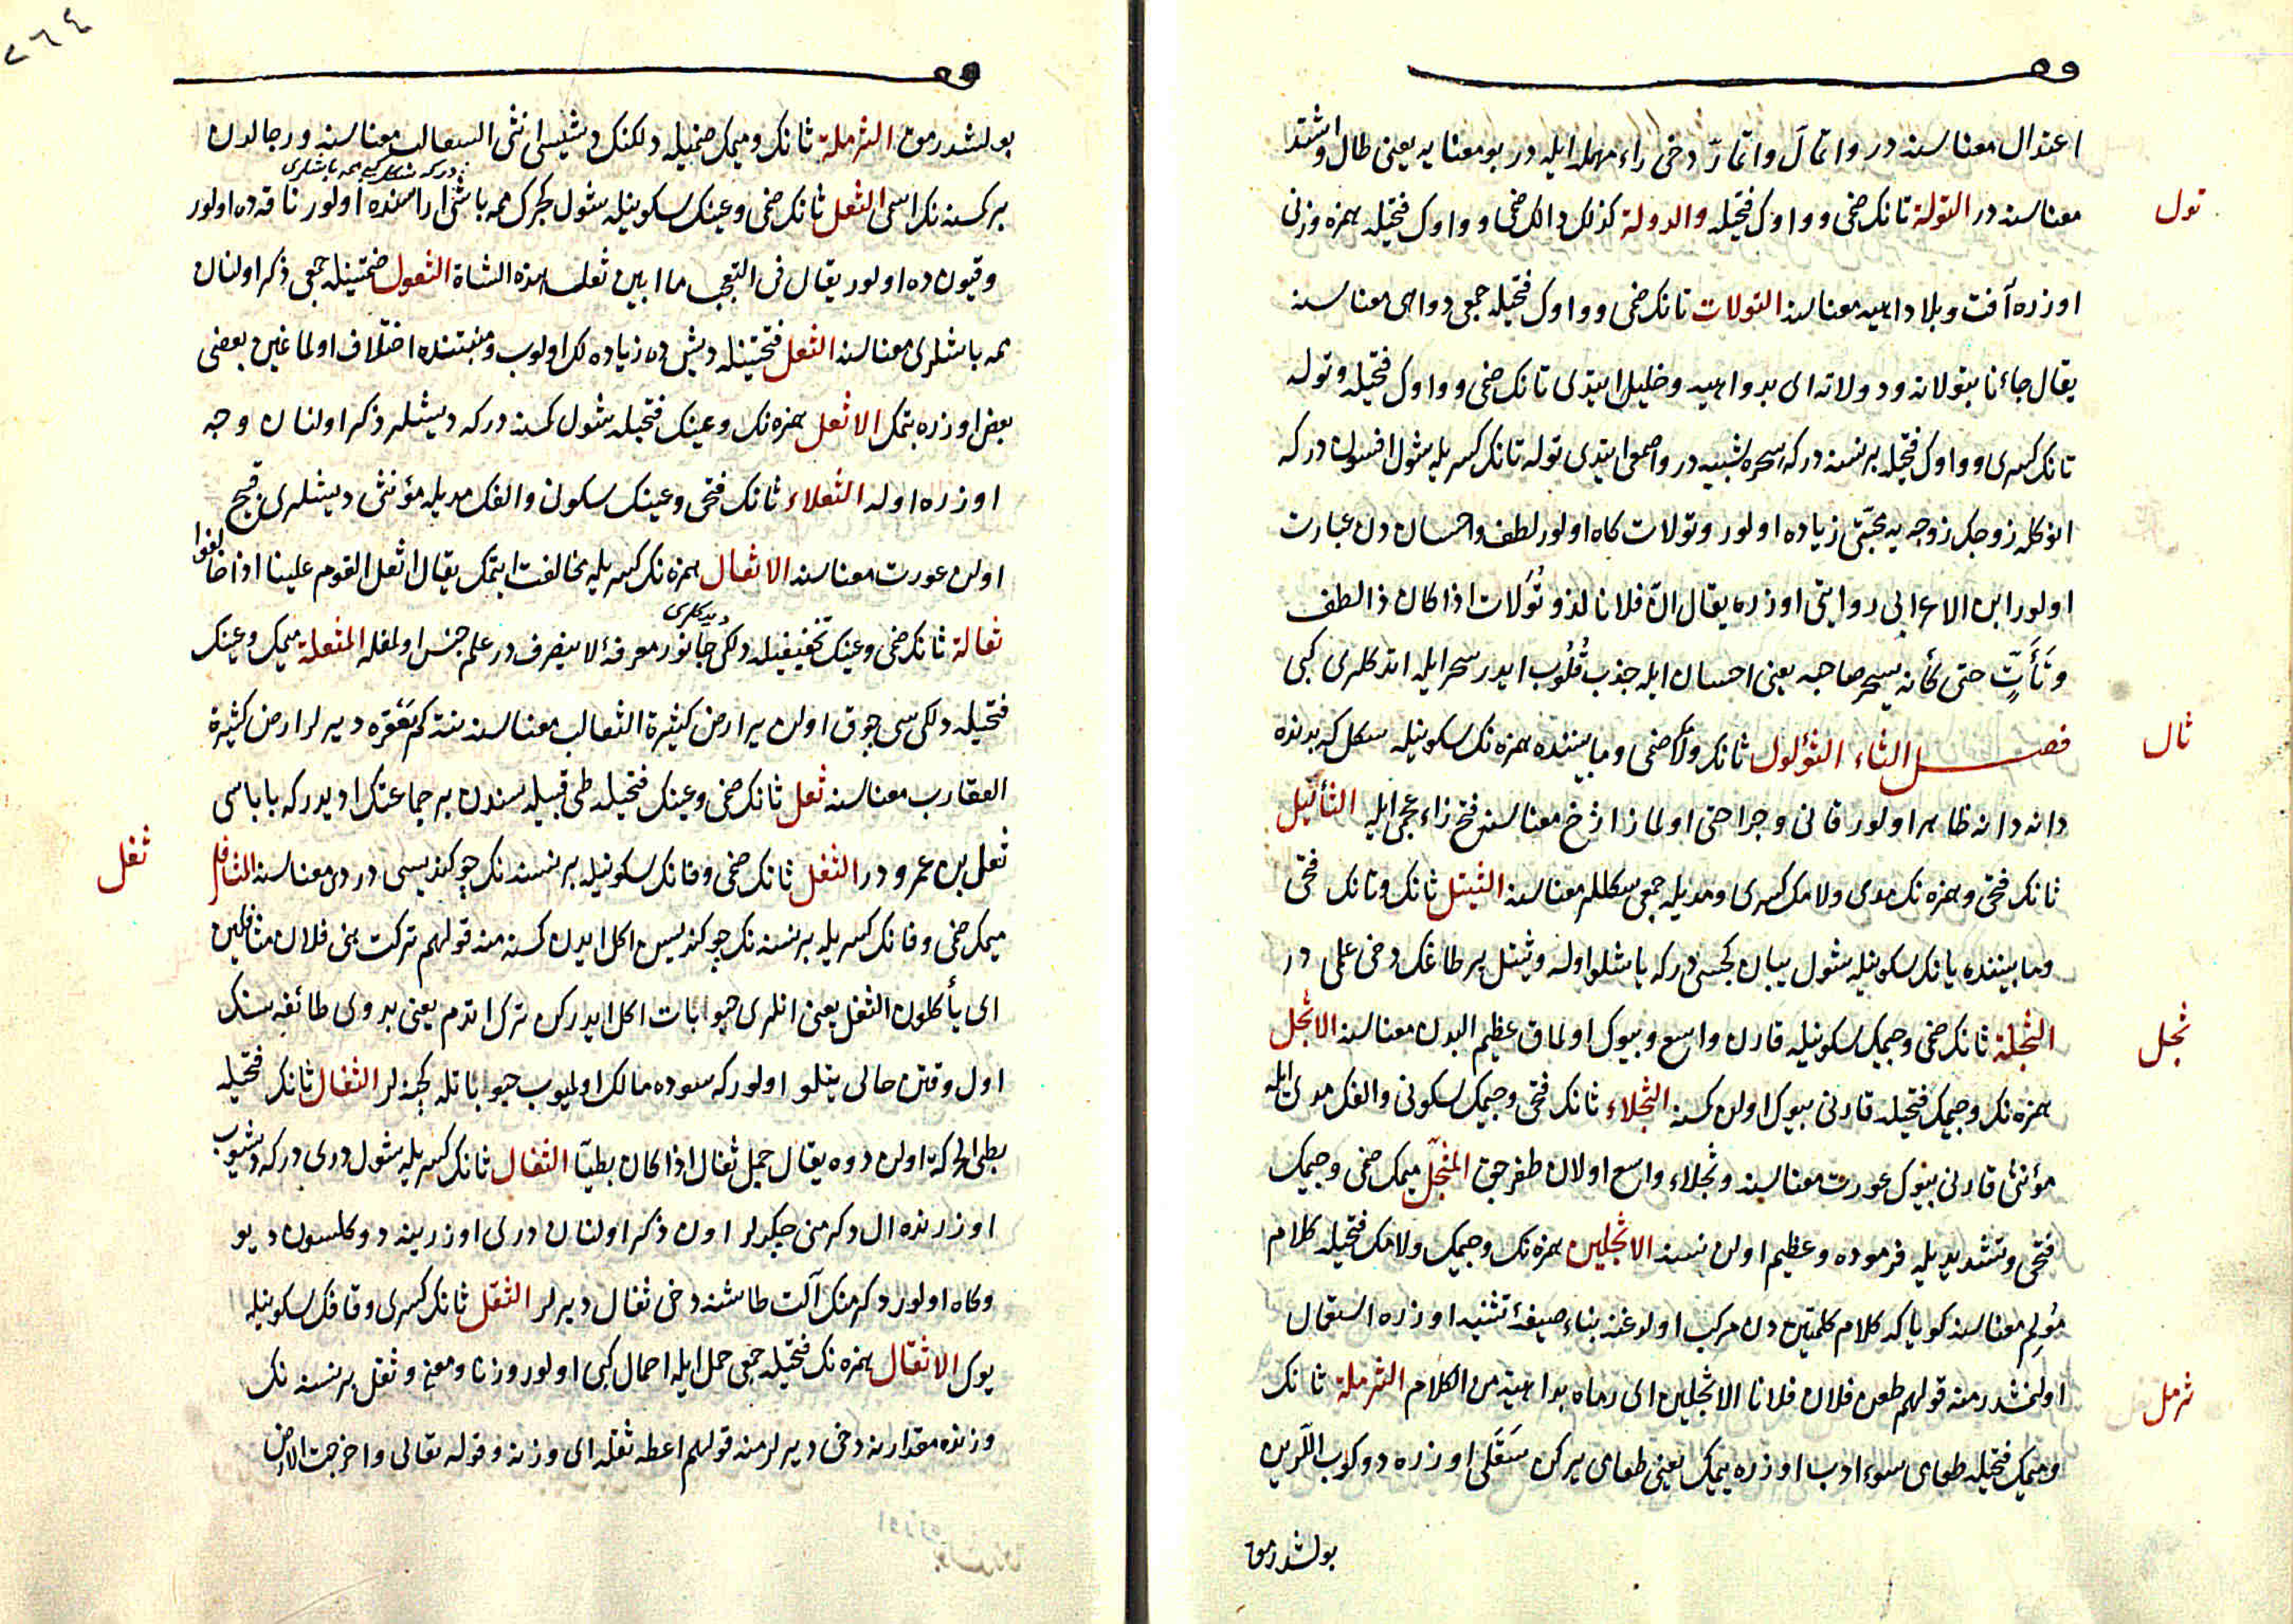 اعتدال معناسنه در واتمأل واتمارّ دخی راء مهمله ایله در بو معنایه یعنی طال واشتد
تول
معناسنه در التولة تانک ضمی و واوک فتحیله والدولة کذلک دالک ضمی و واوک فتحیله همزه وزنی
اوزره آفت و بلا داهیه معناسنه التولات تانک ضمی و واوک فتحیله جمعی دواهی معناسنه
یقال جاءنا بتولاته ودولاته ای بدواهیه وخلیل ایتدی تانک ضمی و واوک فتحیله وتوله
تانک کسری و واوک فتحیله بر نسنه در که سحره شبیه در واصمعی ایتدی توله تانک کسریله شول افسون در که
انوکله زوجک زوجه یه محبتی زیاده اولور وتولات کاه اولور لطف واحسان دن عبارت
اولور ابن الاعرابی روایتی اوزره یقال انّ فلانا لذو تُوَلات اذا کان ذا لطف
وتَأَتٍّ حتی کأنه یسحر صاحبه یعنی احسان ایله جذب قُلُوب ایدر سحر ایله اتدکلری کبی
ثال
فصل الثاء الثؤلول ثانک ولامک ضمی و مابیننده همزه نک سکونیله سکل که بدنده
دانه دانه ظاهر اولور قانی و جراحتی اولماز اژخ معناسنه فتح زاء عجمی ایله الثآلیل
ثانک فتحی و همزه نک مدی ولامک کسری ومدیله جمعی سکللر معناسنه الثیتل ثانک و تانک فتحی
ومابیننده یانک سکونیله شول یبان کچسی در که یاشلو اوله وثیتل بر طاغک دخی علمی در
ثجل
الثجلة ثانک ضمی وجیمک سکونیله قارن واسع و بیوک اولماق عظیم البدن معناسنه الاثجل
همزه نک وجیمک فتحیله قارنی بیوک اولن کمسنه الثجلاء ثانک فتحی وجیمک سکونی والفک مدی ایله
مؤنثی قارنی بیوک عورت معناسنه وثجلاء واسع اولان طغرجق المثجّل میمک ضمی وجیمک
فتحی وتشدیدیله فرموده وعظیم اولن نسنه الاثجلین همزه نک وجیمک ولامک فتحیله کلام
مُولِم معناسنه کویا که کلام کلمتین دن مرکب اولوغنه بناء صیغهٔ تثنیه اوزره استعمال
ثرمل
اولنمشدر منه قولهم طعن فلان فلانا الاثجلین ای رماه بداهیة من الکلام الثرملة ثانک
ومیمک فتحیله طعامی سوء ادب اوزره یمک یعنی طعامی یرکن سَقَلی اوزره دوکوب اللرین
بولشدرمق
٢٦٤
بولشدرمق الثرملة ثانک ومیمک ضمیله دلکنک دیشیسی انثی الثعالب معناسنه ورجالدن
بر کسنه نک اسمی الثعل ثانک ضمی وعینک سکونیله شول کجرک ممه باشی اراسنده اولور ناقه ده اولور
وقیون ده اولور یقال فی التعجب ما ابین ثعل هذه الشاة الثعول ضمتینله جمعی ذکر اولنان
ممه باشلری معناسنه الثعل فتحتینله دیش ده زیاده لک اولوب و منبتنده اختلاف اولماغین بعضی
بعض اوزره بتمک الاثعل همزه نک وعینک فتحیله شول کمسنه در که دیشلر ذکر اولنان وجه
اوزره اوله الثعلاء ثانک فتحی وعینک سکونی والفک مدیله مؤنثی دیشلری قبیح
اولن عورت معناسنه الاثعال همزه نک کسریله مخالفت ایتمک یقال اثعل القوم علینا اذا خالفوا
ثعالة ثانک ضمی وعینک تخفیفیله دلکی دیدکلری جانور معرفهٔ لاینصرف در علم جنس اولمغله المثعلة میمک وعینک
فتحیله دلکی سی چوق اولن یر ارض کثیرة الثعالب معناسنه نته کم مَعقَره دیرلر ارض کثیرة
العقارب معناسنه ثعل ثانک ضمی وعینک فتحیله طی قبیله سندن بر جماعتک ادیدر که باباسی
ثفل
ثعل بن عمرو در الثفل ثانک ضمی وفانک سکونیله بر نسنه نک چوکندیسی دردی معناسنه المثافل
میمک ضمی وفانک کسریله بر نسنه نک چوکندیسین اکل ایدن کسنه منه قولهم ترکت بنی فلان مثافلین
ای یأکلون الثفل یعنی انلری حبوبات اکل ایدرکن ترک اتدم یعنی بدوی طائفه سنک
اول وقتن حالی یتلو اولور که سوده مالک اولمیوب حبوباتله کچنرلر الثفال ثانک فتحیله
بطیء الحرکة اولن دوه یقال جمل ثفال اذا کان بطیئا الثفال ثانک کسریله شول دری در که دوشیوب
اوزرنده ال دکرمنی چکرلر اون ذکر اولنان دری اوزرینه دوکلسون دیو
وکاه اولور دکرمنک آلت طاشنه دخی ثفال دیرلر الثقل ثانک کسری وقافک سکونیله
یوک الاثقال همزه نک فتحیله جمعی حمل ایله احمال کبی اولور وزنا ومعنی وثقل بر نسنه نک
وزنده مقدارینه دخی دیرلر منه قولهم اعطه ثقله ای وزنه وقوله تعالی واخرجت الارض